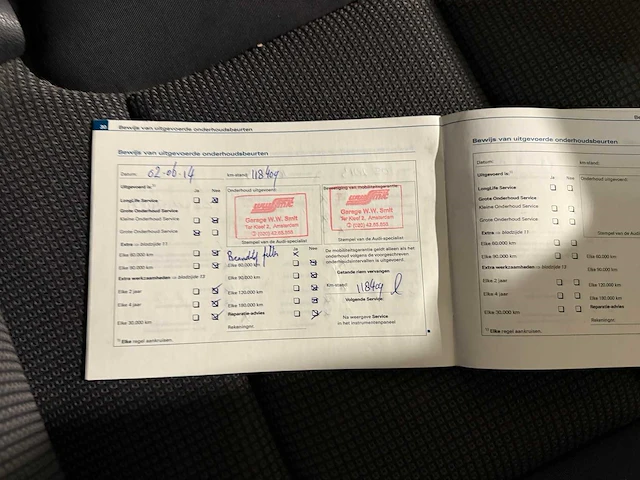 30
Bewijs van uitgevoerde onderhoudsbeurten
Bewijs van uitgevoerde onderhoudsbeurten
Datum: 02-06-14 km-stand: 118409
Uitgevoerd is:¹⁾ Ja Nee
LongLife Service
Grote Onderhoud Service:
Kleine Onderhoud Service
Grote Onderhoud Service
Extra ⇒ bladzijde 11
Elke 60.000 km
Elke 90.000 km
Extra werkzaamheden ⇒ bladzijde 12
Elke 2 jaar
Elke 4 jaar
Elke 30.000 km
¹⁾ Elke regel aankruisen.
Onderhoud uitgevoerd:
Garage W.W. Smit
Ter Kleef 2, Amsterdam
Stempel van de Audi-specialist
Ja Nee
Brandstof filter
Elke 60.000 km
Elke 90.000 km
Elke 120.000 km
Elke 180.000 km
Reparatie-advies
Rekeningnr.
Bevestiging van mobiliteitsgarantie:
Garage W.W. Smit
Ter Kleef 2, Amsterdam
Stempel van de Audi-specialist
De mobiliteitsgarantie geldt alleen als het
onderhoud volgens de voorgeschreven
onderhoudsintervallen is uitgevoerd.
Getande riem vervangen:
Km-stand: 118409
Volgende Service:
Na weergave Service
in het instrumentenpaneel
Bewijs van uitgevoerde onderhoudsbeurten
Datum: km-stand:
Uitgevoerd is:¹⁾ Ja Nee
LongLife Service
Grote Onderhoud Service:
Kleine Onderhoud Service
Grote Onderhoud Service
Extra ⇒ bladzijde 11
Elke 60.000 km
Elke 90.000 km
Extra werkzaamheden ⇒ bladzijde 12
Elke 2 jaar
Elke 4 jaar
Elke 30.000 km
¹⁾ Elke regel aankruisen.
Onderhoud uitgevoerd:
Elke 60.000 km
Elke 90.000 km
Elke 120.000 km
Elke 180.000 km
Rekeningnr.